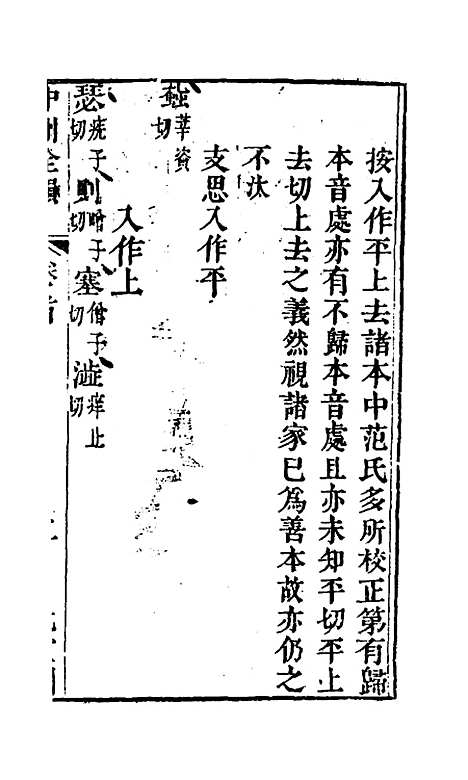 按入作平上去諸本中范氏多所校正第有歸
本音處亦有不歸本音處且亦未知平切平上
去切上去之義然視諸家已爲善本故亦仍之
不汰
支思入作平
莘資切
入作上
瑟疣子切 則噌子切 塞僧子切 澁痒止切
中州全韻